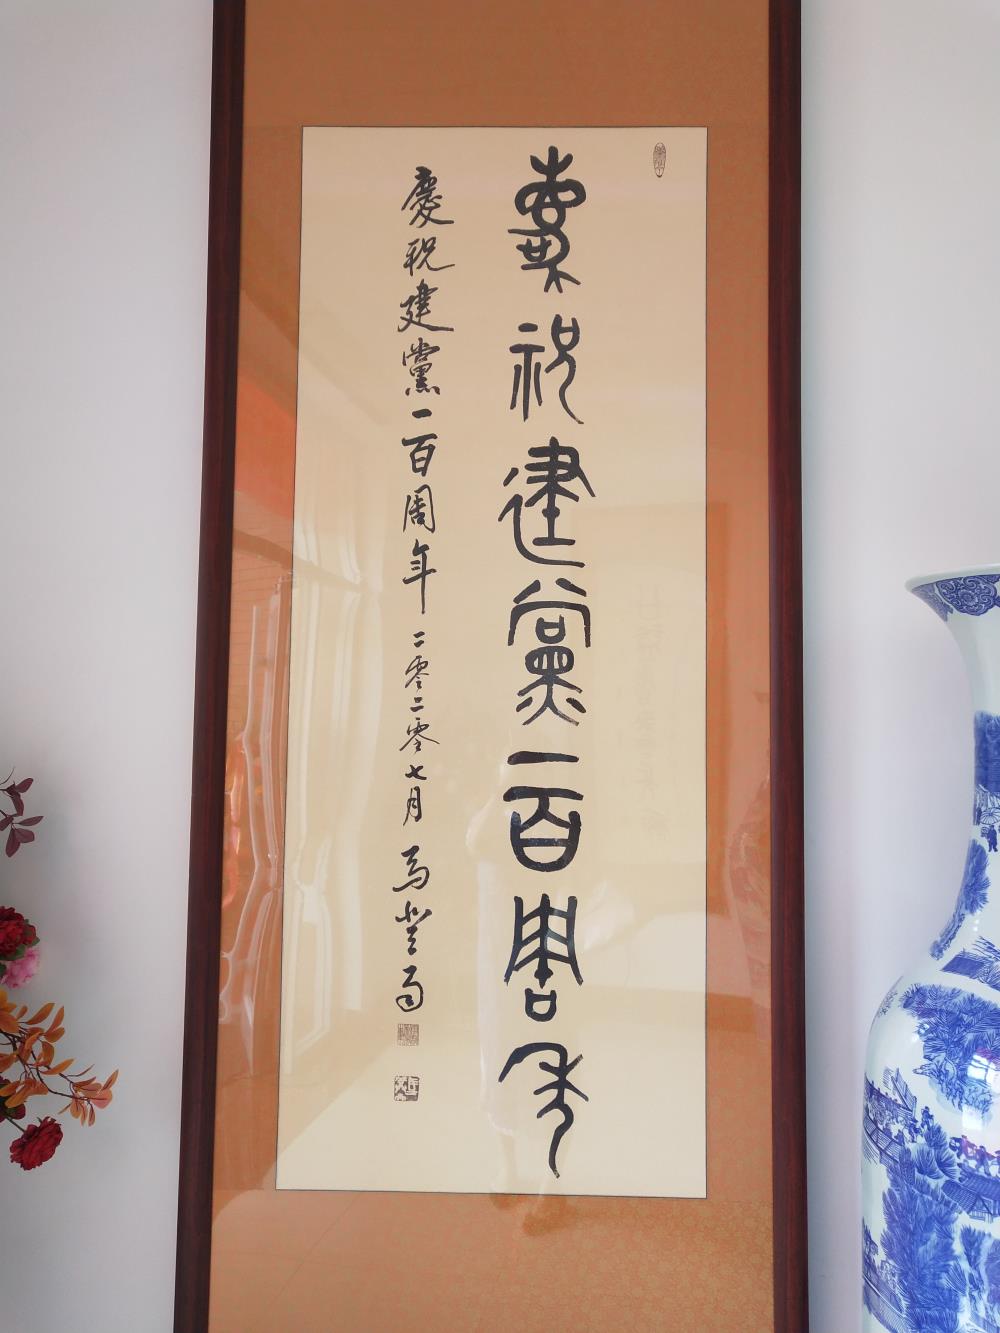 慶祝建黨一百周年
慶祝建黨一百周年 二零二零七月 馬